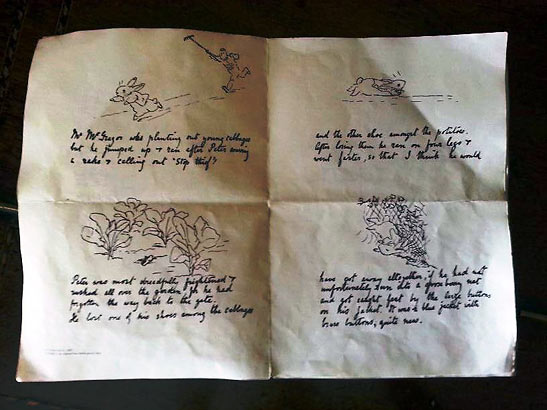 Mr McGregor was planting out young cabbages
but he jumped up & ran after Peter waving
a rake & calling out 'Stop thief'!
Peter was most dreadfully frightened &
rushed all over the garden for he had
forgotten the way back to the gate.
He lost one of his shoes among the cabbages
and the other shoe amongst the potatoes.
After losing them he ran on four legs &
went faster, so that I think he would
have got away altogether if he had not
unfortunately run into a gooseberry net
and got caught fast by the large buttons
on his jacket. It was a blue jacket with
brass buttons, quite new.